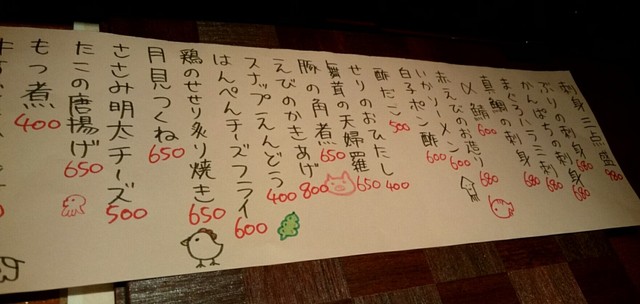 刺身三点盛 980
ぶりの刺身 680
かんぱちの刺身 680
まぐろ 680
真鯛の刺身 680
〆鯖 600
赤えびのお造り 680
いかソーメン 600
白子ポン酢 600
酢だこ 500
せりのおひたし 400
舞茸の天婦羅 650
豚の角煮 650
えびのかきあげ 800
スナップえんどう 400
はんぺんチーズフライ 600
鶏のせせり炙り焼き 650
月見つくね 650
ささみ明太チーズ 500
たこの唐揚げ 650
もつ煮 400